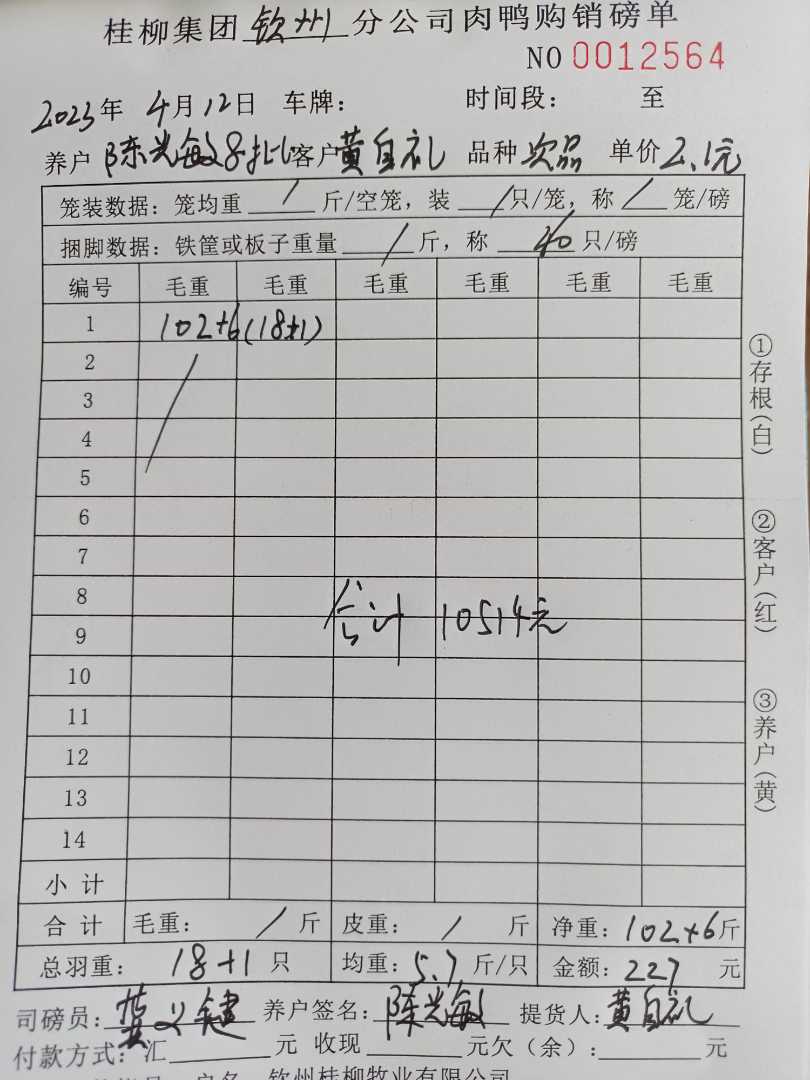 桂柳集团钦州分公司肉鸭购销磅单
NO 0012564
2023年 4月12日 车牌： 时间段： 至
养户 陈兴敏 客户 黄自礼 品种 次品 单价 2.1元
笼装数据：笼均重 / 斤/空笼，装 / 只/笼，称 / 笼/磅
捆脚数据：铁筐或板子重量 / 斤，称 40 只/磅
编号 毛重 毛重 毛重 毛重 毛重 毛重
1 102+6(18+1)
2
3
4
5
6
7
8
合计 10514元
9
10
11
12
13
14
小 计
合 计 毛重： / 斤 皮重： / 斤 净重：102+6斤
总羽重： 18+1 只 均重：5.7 斤/只 金额：227 元
司磅员：龚义健 养户签名：陈兴敏 提货人：黄自礼
付款方式：汇 元 收现 元欠（余）： 元
户名 钦州桂柳牧业有限公司
①存根（白）
②客户（红）
③养户（黄）